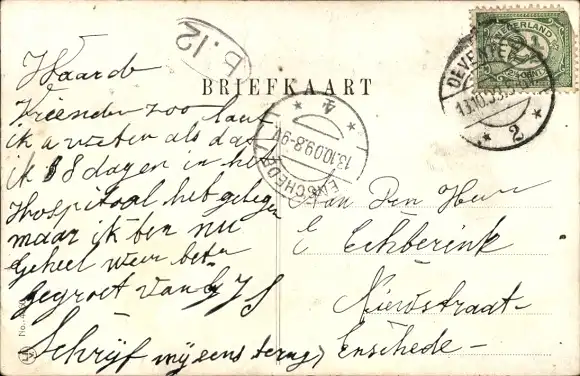 Waarde
Vriend zoo laat
ik u weten als dat
ik 18 dagen in het
Hospitaal heb gelegen
maar ik ben nu
Geheel weer beter
gegroet van G J S
Schrijf mij eens terug
b.12
BRIEFKAART
NEDERLAND
2½ CENT
DEVENTER
2
ENSCHEDE
13.10.09.8-9V
4
Aan Den Heer
E Echberink
Nieuwstraat
Enschede
No.